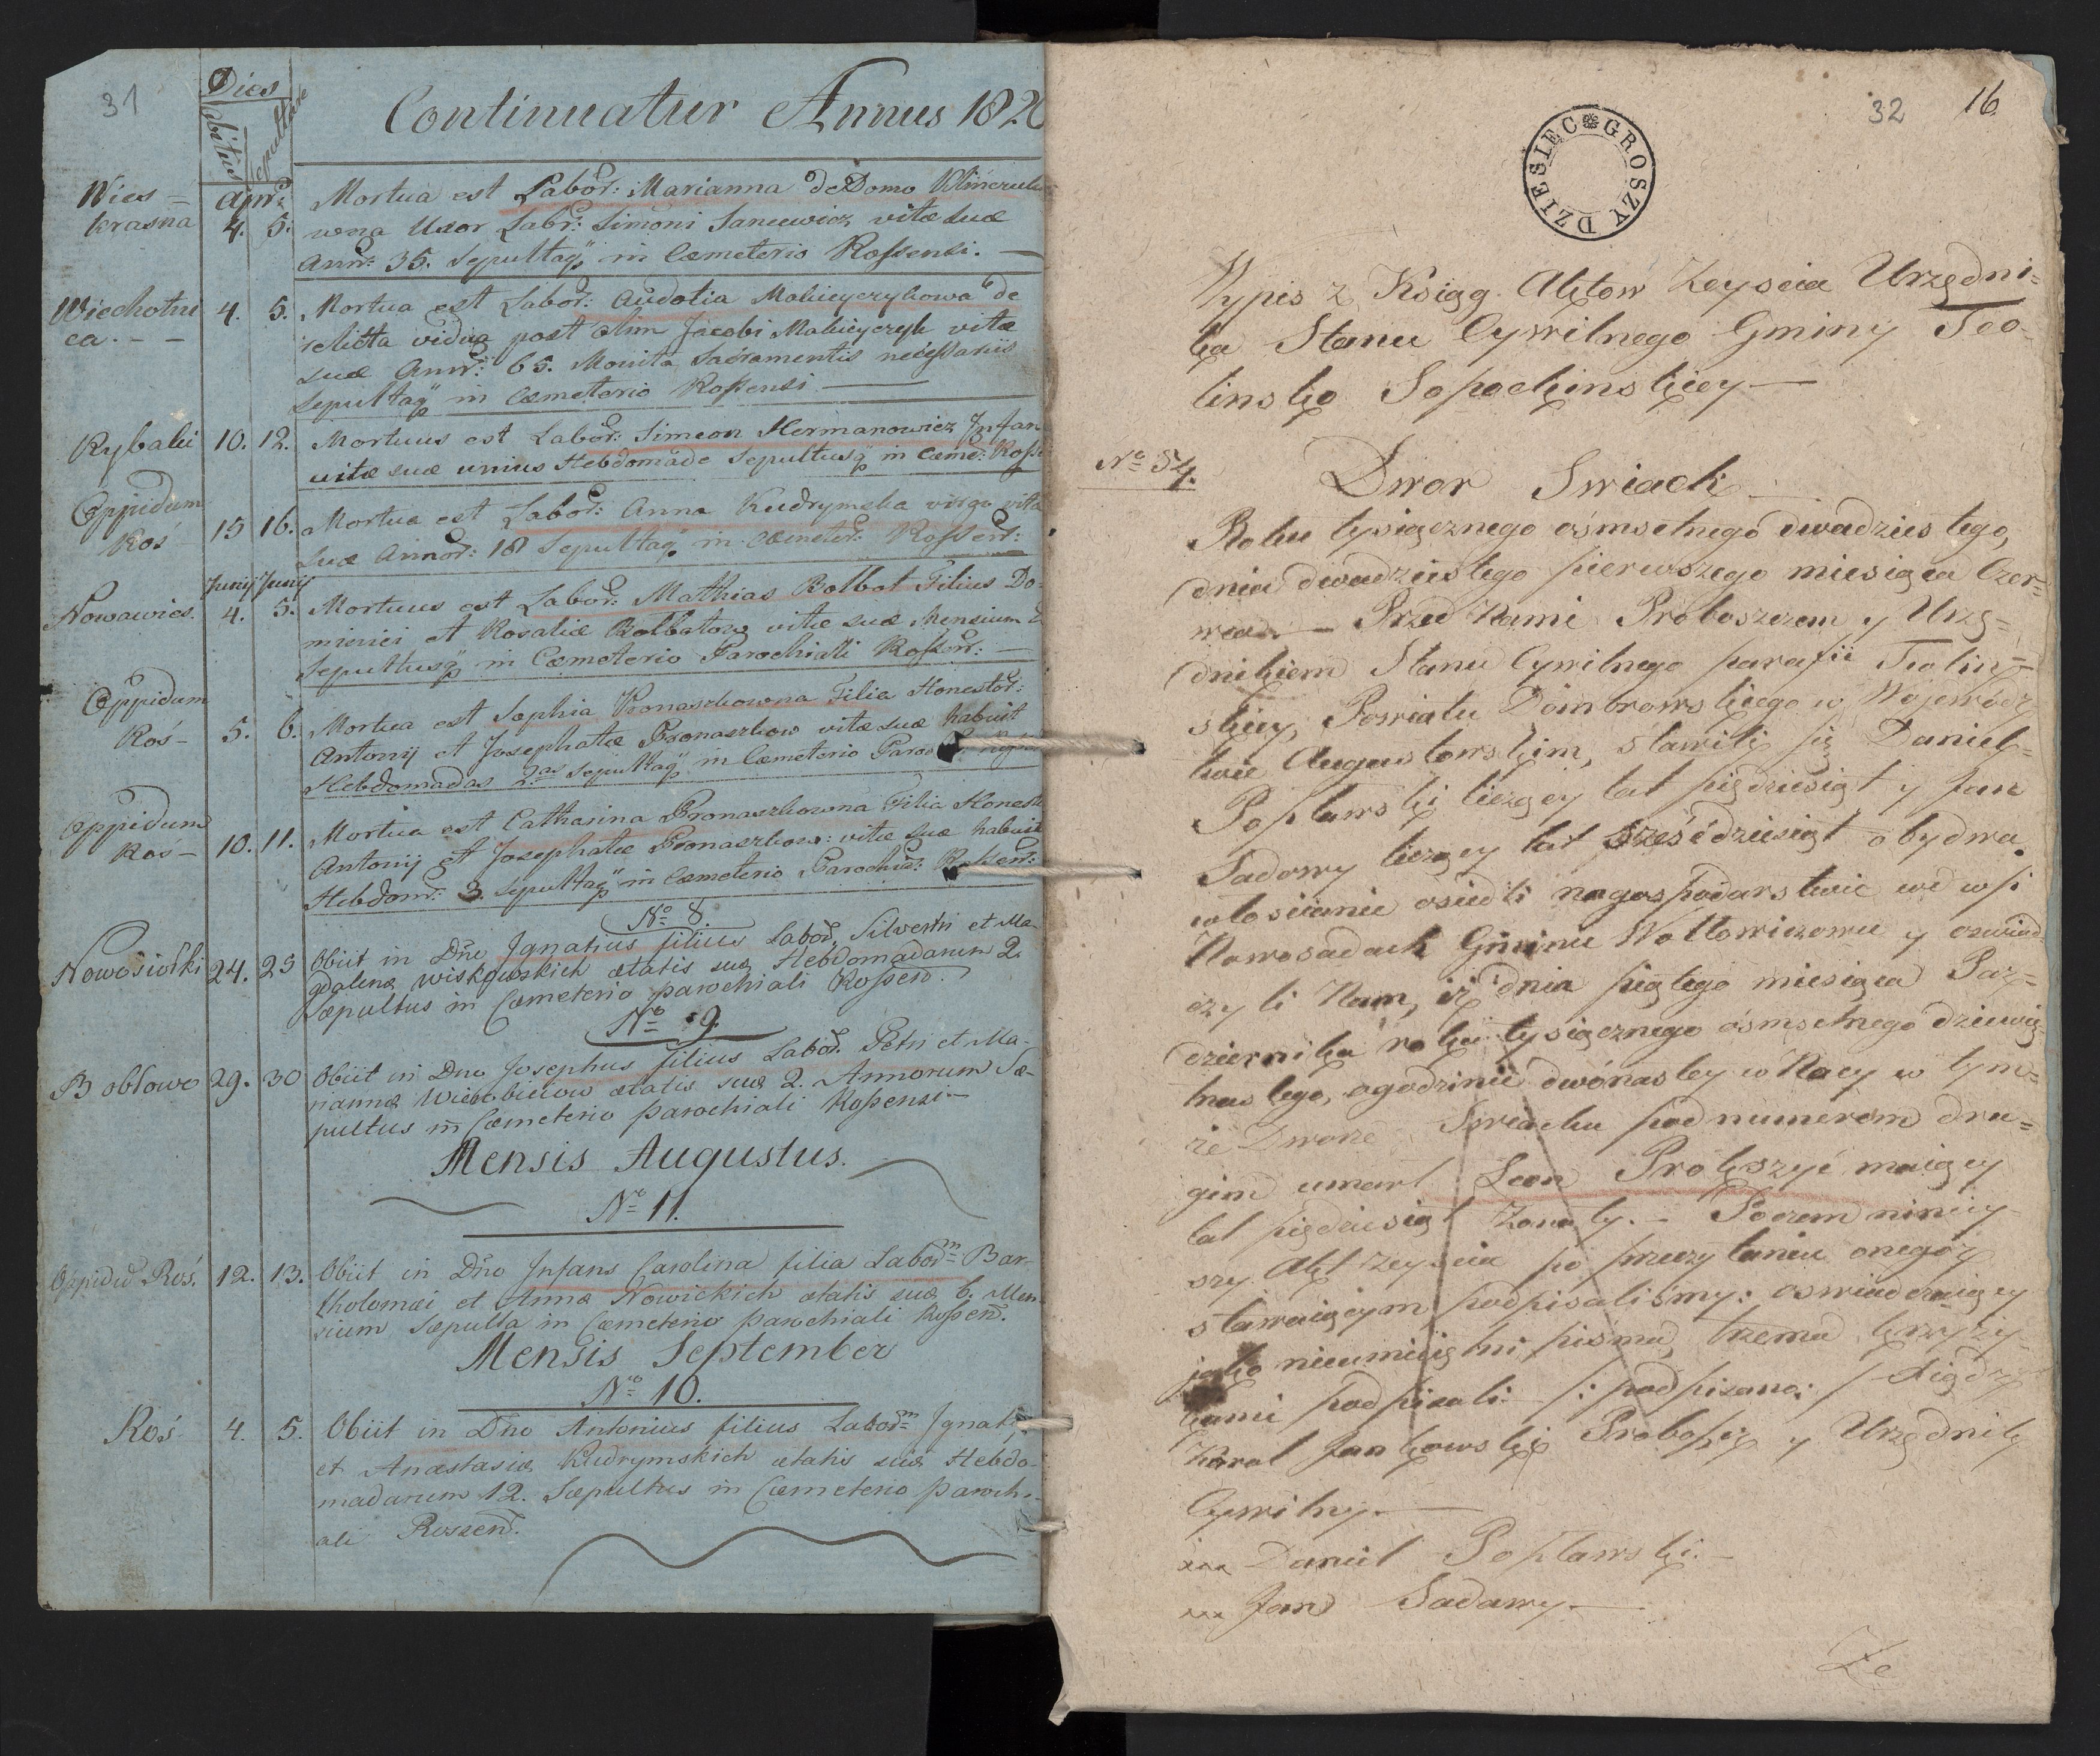 31
Dies
Obitus
Sepulturae
Continuatur Annus 182
Wies=
krasna
Apr:
4. 5.
Mortua est Labor: Marianna de Domo
wna Uxor Labr: Simoni Janucewicz vitæ suæ
Ann: 35. Sepultaq in Cæmeterio Rossensi.
Wiechotni
ca. - -
4. 5.
Mortua est Labor: Audotia Makieyczykowa de
relicta vidua post olim Jacobi Makieyczyk vitæ
suæ Annr: 65. Monita Sacramentis necessariis
Sepultaq in Cæmeterio Rossensi
Rybaki
10. 12.
Mortuus est Labor: Simeon Hermanowicz Infan
vitæ suæ unius Hebdomade Sepultusq in Cæme: Rosse
Oppidum
Roś
15 16.
Mortua est Labor: Anna Kudrymska virgo vitæ
suæ Annor: 18 Sepultaq in Cæmeter: Rossen:
Junij Junij
Nowawies.
4. 5.
Mortuus est Labor: Mathias Bolbot Filius Do=
minici et Rosaliæ Bolbotow vitæ suæ Mensium 2
Sepultusq in Cæmeterio Parochiali Rossen:
Oppidum
Roś-
5. 6.
Mortua est Sophia Pronaszkowna Filia Honestor:
Antonij et Josephatæ Pronaszkow vitæ suæ habuit
Hebdomadas 2as Sepultaq in Cæmeterio Paroc
Oppidum
Roś-
10. 11.
Mortua est Catharina Pronaszkowna Filia Honest
Antonij et Josephatæ Pronaszkow: vitæ suæ habuit
Hebdom: 3. Sepultaq in Cæmeterio Parochia: Rossen:
No 8.
Nowosiołki
24. 25
Obiit in Dño Ignatius filius Labor. Silvestri et Ma-
gdalenæ Wiskowskich ætatis suæ Hebdomadarum 2.
Sæpultus in Cæmeterio parochiali Rossen.
No 9.
Bobłowo
29. 30
Obiit in Dno Josephus filius Labor. Petri et Ma-
riannæ ætatis suæ 2. Annorum Sæ-
pultus in Cæmeterio parochiali Rossensi-
Mensis Augustus.
No 11.
Oppidu Roś.
12. 13.
Obiit in Dño Infans Carolina filia Laborm Bar-
tholomæi et Annæ Nowickich ætatis suæ 6. Men
sium Sæpulta in Cæmeterio parochiali Rossen.
Mensis September
No 10.
Roś
4. 5.
Obiit in Dño Antonius filius Laborm Ignati
et Anastasiæ Kudrymskich ætatis suæ Hebdo-
madarum 12. Sæpultus in Cæmeterio paroch.
ali Rossen.
32 16.
DZIESIEC GROSZY
Wypis z Ksiąg Aktow Zeyscia Urzędni=
ka Stanu Cywilnego Gminy Teo-
linsko Sopockinskiey
No 54.
Dwor Swiack
Roku tysiącznego ośmsetnego dwadziestego,
dnia dwadziestego pierwszego miesiąca Czer=
wca. Przed Nami Proboszczem y Urzę=
dnikiem Stanu Cywilnego parafii Teolin=
skiey, Powiatu Dombrowskiego w Wojewódz
twie Augustowskim, stawili się Daniel
Popławski liczący lat pięćdziesiąt y Jan
Sadowy liczący lat sześćdziesiąt obydwa
włościanie osiedli na gospodarstwie we wsi
Nowosadach Gminie Wołłowiczowce y oswiad
czyli Nam, iż dnia piątego miesiąca Paz=
dziernika roku tysiącznego ośmsetnego dziewię-
tnastego, o godzinie dwónastey w Nocy w tym=
że Dworze Swiacku pod numerem dru=
gim umarł Leon Prokszyć maiący
lat pięćdziesiąt Zonaty. - Poczem ninięy
szy Akt Zeyscia po przeczytaniu onegoż
stawaiącym podpisaliśmy: oswiadczaiący
jako nieumieiętni pisma, trzema krzyży
kami podpisali. /: podpisano: /
Karol Jankowski Proboszcz y Urzędnik
Cywilny.
xxx Daniel Popławski.
xxx Jan Sadowy.
Ze